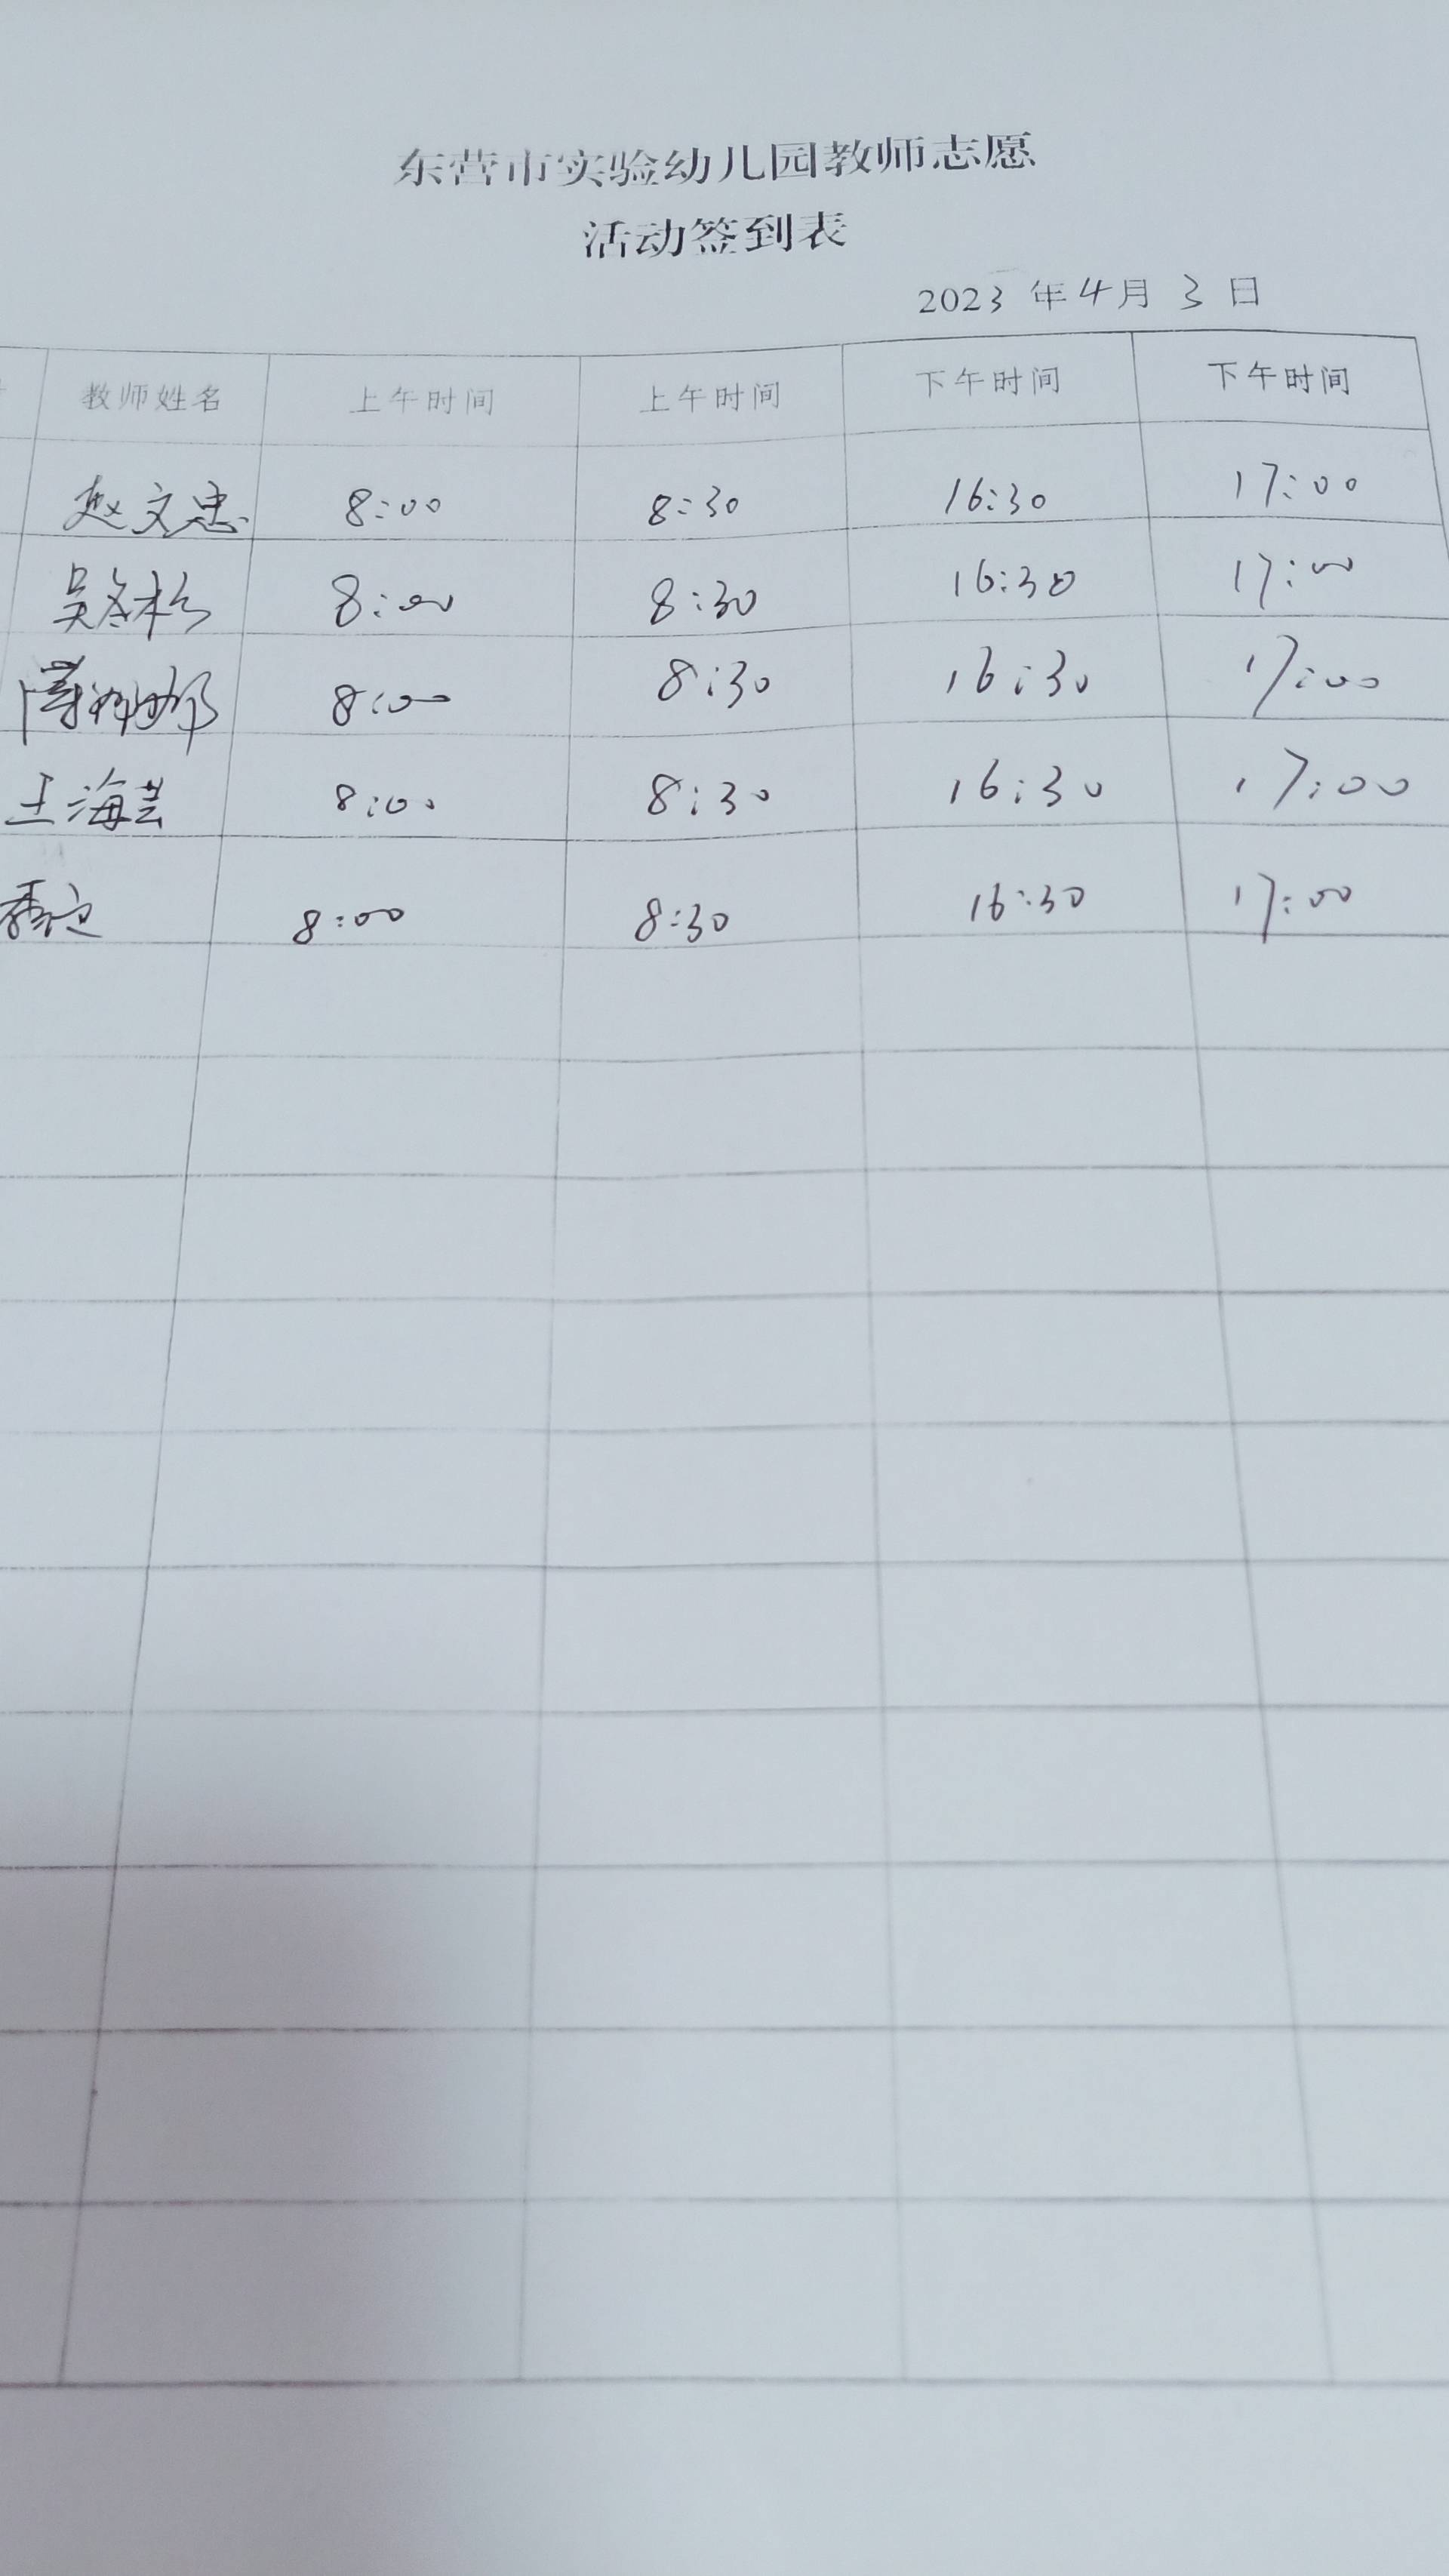 东营市实验幼儿园教师志愿
活动签到表
2023 年 4 月 3 日
教师姓名 上午时间 上午时间 下午时间 下午时间
赵文忠 8:00 8:30 16:30 17:00
吴冬松 8:00 8:30 16:30 17:00
8:00 8:30 16:30 17:00
王海芸 8:00 8:30 16:30 17:00
8:00 8:30 16:30 17:00